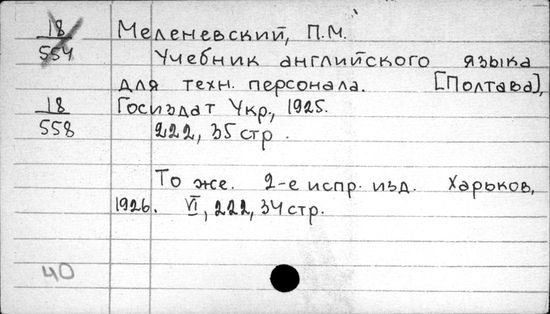 18 Меленевский, П.М.
554 Учебник английского языка
для техн. персонала. [Полтава],
18 Госиздат Укр., 1925.
558 222, 35 стр.
То же. 2-е испр. изд. Харьков,
1926. VI, 222, 34 стр.
40